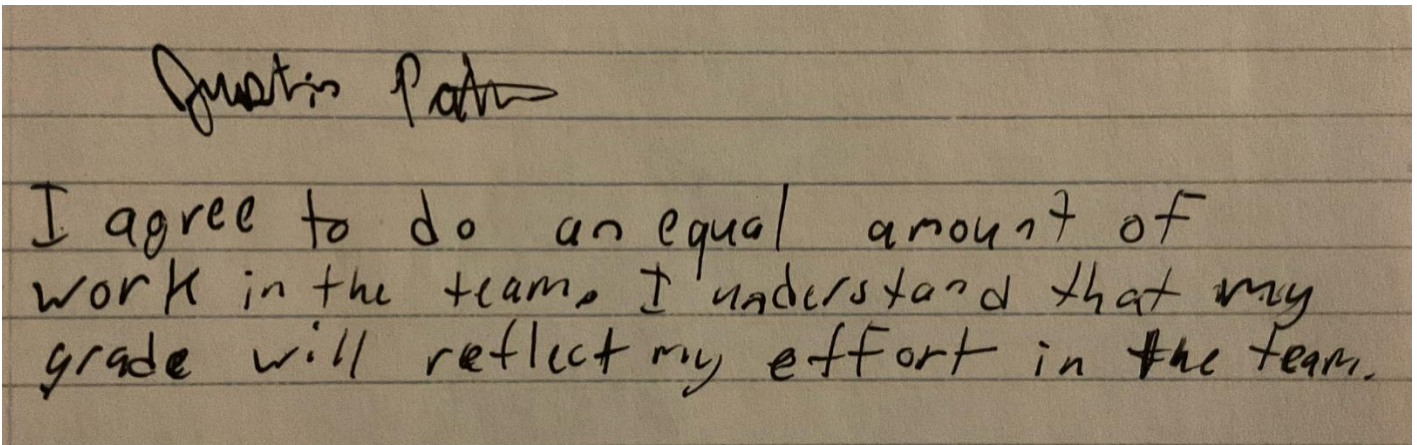 Justin
I agree to do an equal amount of
work in the team. I understand that my
grade will reflect my effort in the team.